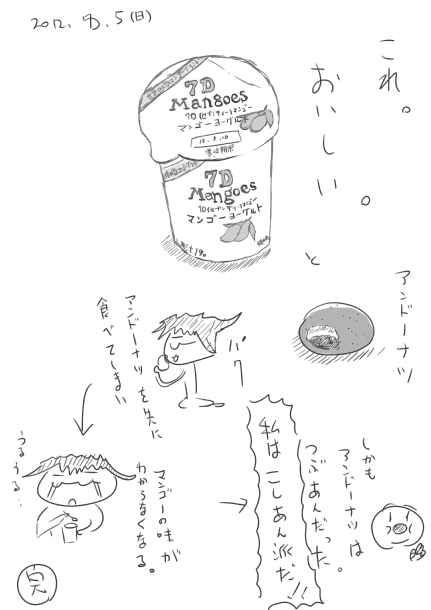 2012. 8. 5 (日)
これ。
おいしい。
7D
Mangoes
7D(セブンディー)マンゴー
マンゴーヨーグルト
12.8.10
賞味期限
7D
Mangoes
7D(セブンディー)マンゴー
マンゴーヨーグルト
と
アンドーナツ
アンドーナツを先に
食べてしまい
パク
うるうる…
マンゴーの味が
わからなくなる。
しかも
アンドーナツは
つぶあんだった。
私はこしあん派だ!!
完